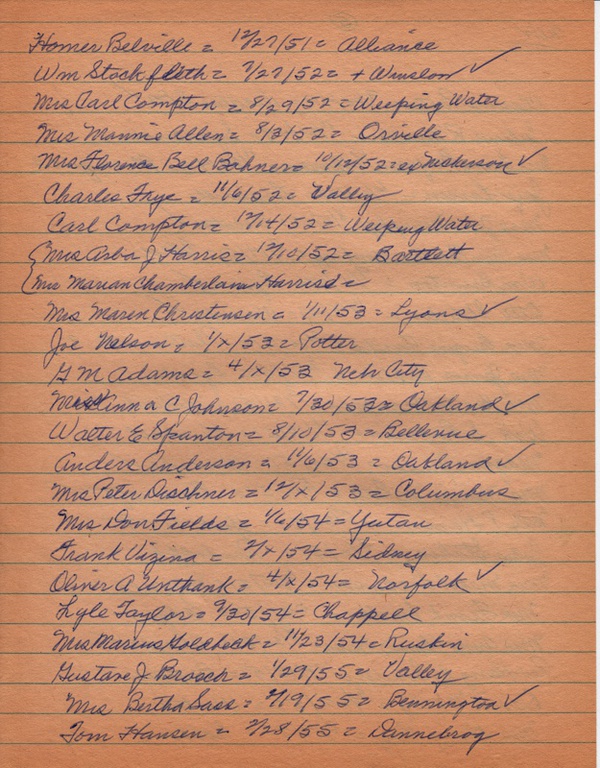 Homer Belville = 12/27/51 = Alliance
Wm Stockfleth = 7/27/52 = + Winslow ✓
Mrs Carl Compton = 8/29/52 = Weeping Water
Mrs Mannie Allen = 8/3/52 = Orville
Mrs Florence Bell Bohner = 10/12/52 = ex Nickerson ✓
Charles Frye = 11/6/52 = Valley
Carl Compton = 12/14/52 = Weeping Water
Mrs Arbor J Harris = 12/10/52 = Bartlett
Mrs Marian Chamberlain Harris =
Mrs Maren Christensen = 1/11/53 = Lyons ✓
Joe Nelson = 1/x/53 = Potter
G M Adams = 4/x/53 Neb City
Anna C Johnson = 7/30/53 = Oakland ✓
Walter E Spanton = 8/10/53 = Bellevue
Anders Anderson = 11/6/53 = Oakland ✓
Mrs Peter Dischner = 12/x/53 = Columbus
Mrs Don Fields = 1/6/54 = Yutan
Frank Vizina = 2/x/54 = Sidney
Oliver A Unthank = 4/x/54 = Norfolk ✓
Lyle Taylor = 9/30/54 = Chappell
Mrs Marius Goldbeck = 11/23/54 = Ruskin
Gustave J Brosch = 1/29/55 = Valley
Mrs Bertha Sass = 2/19/55 = Bennington ✓
Tom Hansen = 2/28/55 = Dannebrog